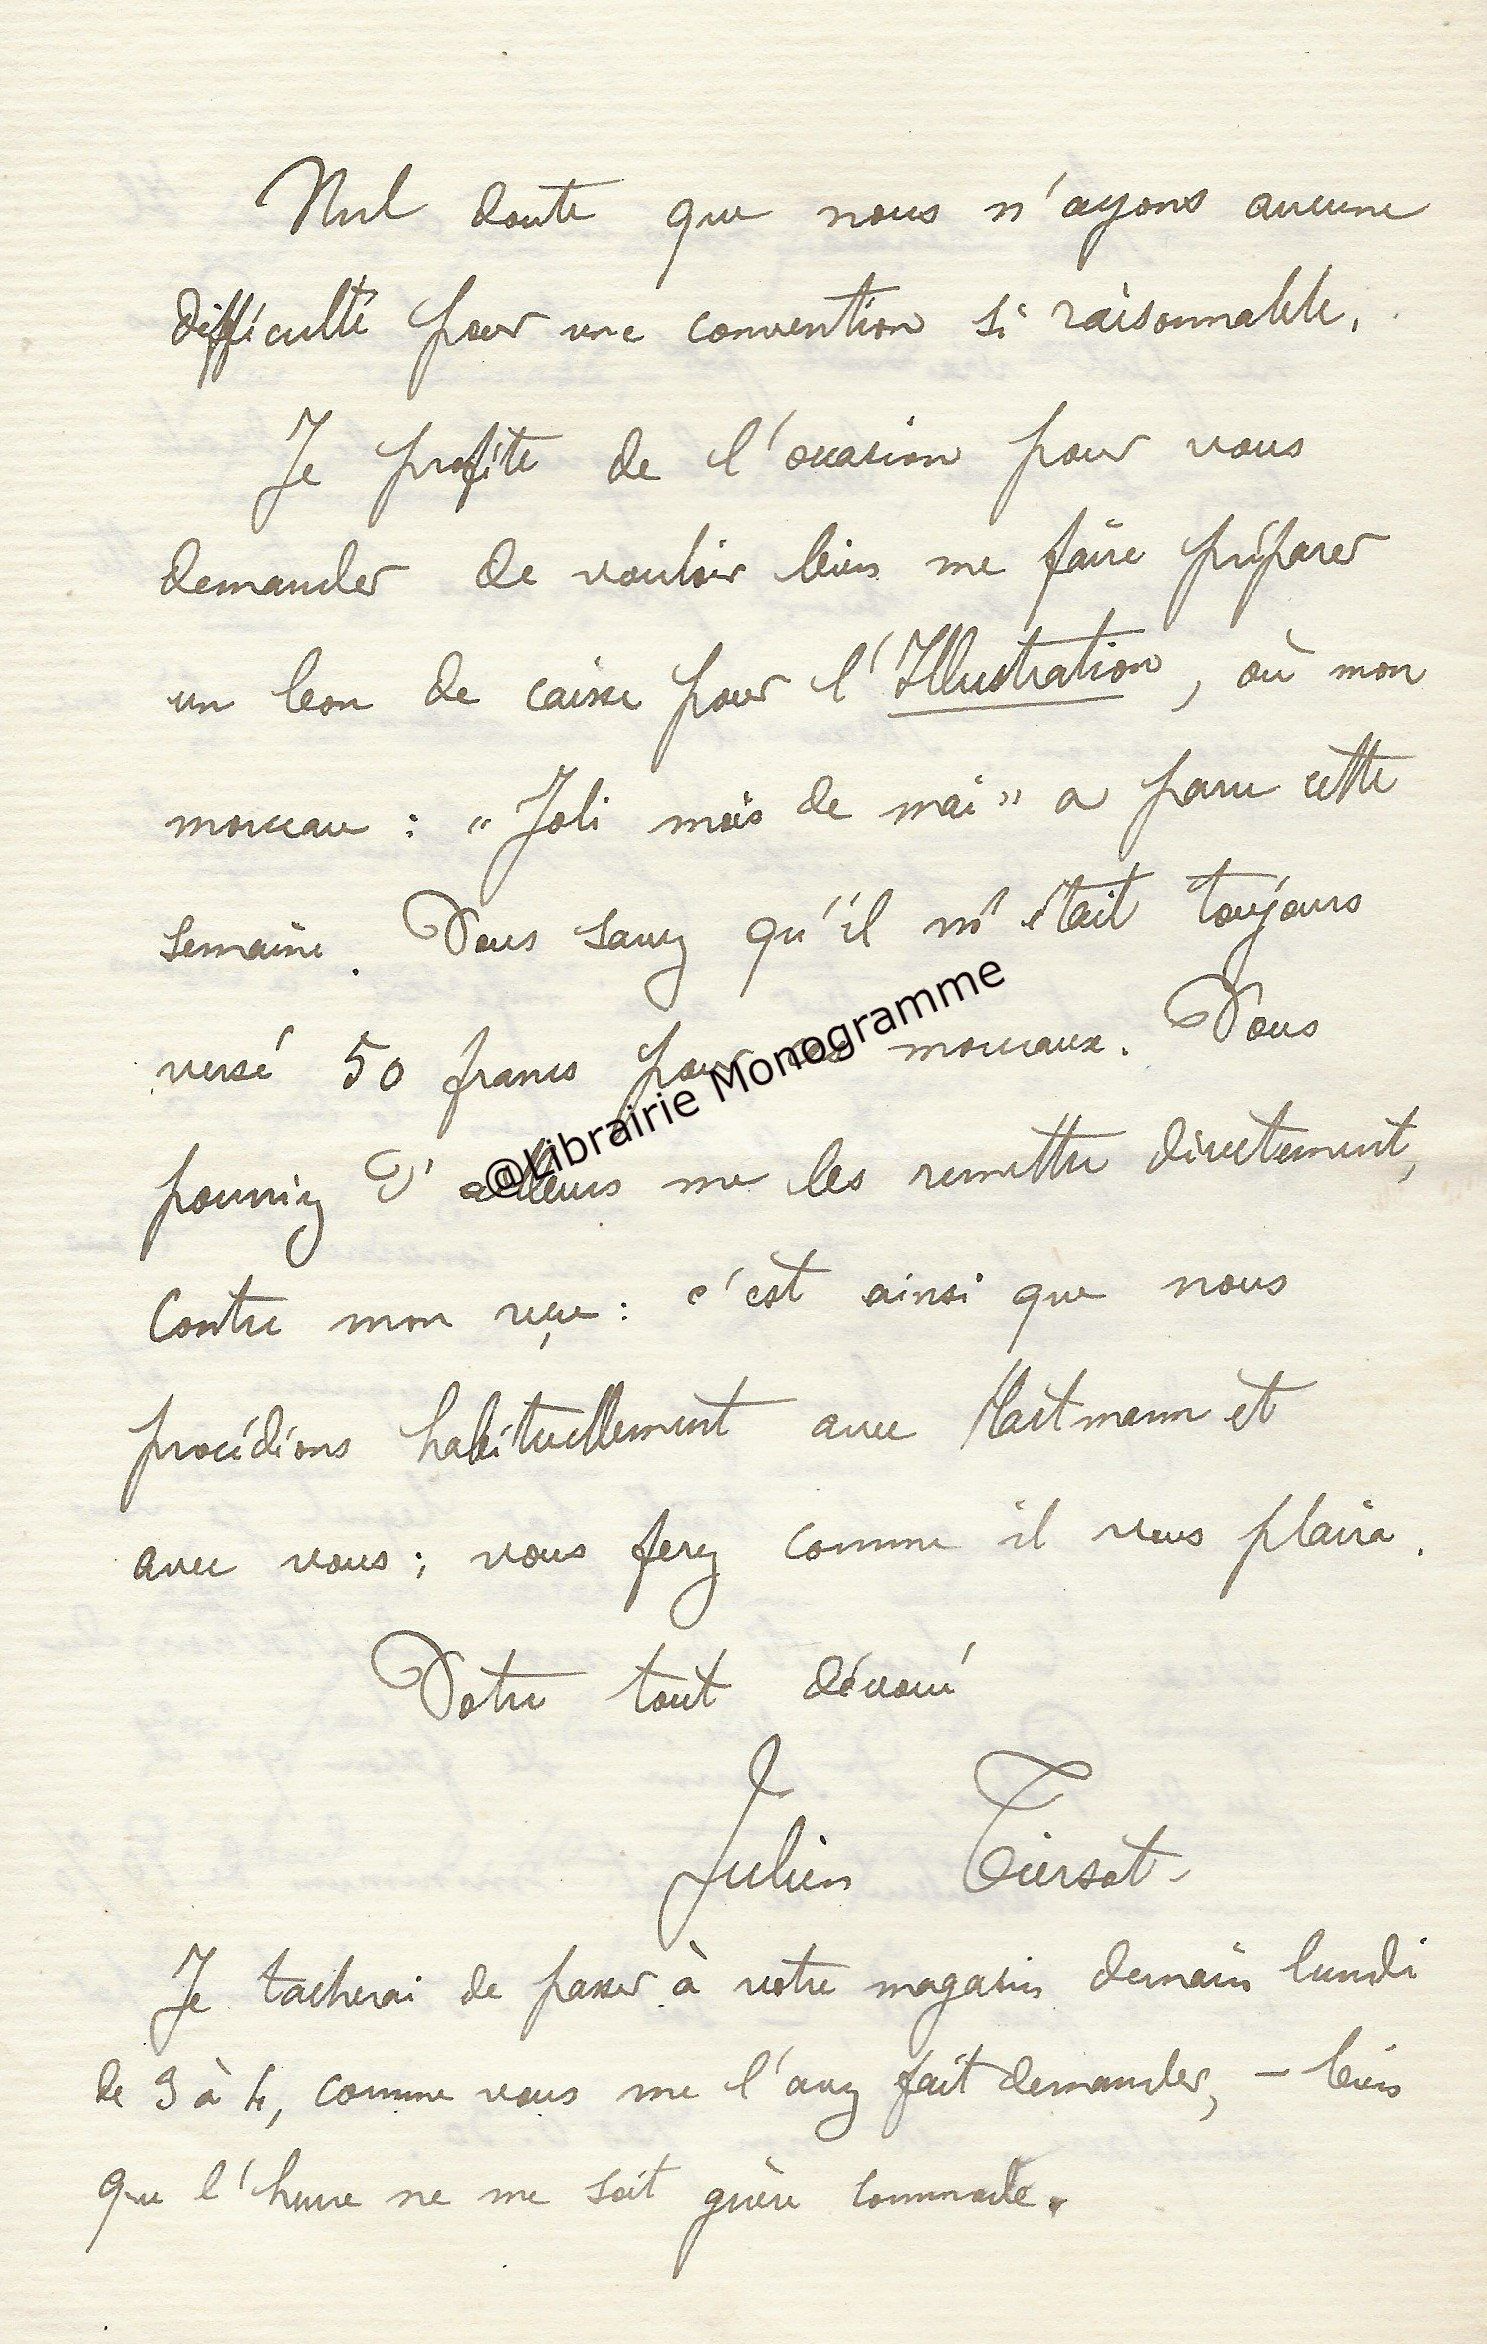 Nul doute que nous n'ayons aucune
difficulté pour une convention si raisonnable.
Je profite de l'occasion pour vous
demander de vouloir bien me faire préparer
un bon de caisse pour l'Illustration, où mon
morceau : "Joli mois de mai" a paru cette
semaine. Vous savez qu'il m'était toujours
versé 50 francs pour ces morceaux. Vous
pourriez d'ailleurs me les remettre directement,
contre mon reçu : c'est ainsi que nous
procédions habituellement avec Hartmann et
avec vous ; vous ferez comme il vous plaira.
Votre tout dévoué
Julien Tiersot
Je tacherai de passer à votre magasin demain lundi
de 3 à 4, comme vous me l'avez fait demander, – bien
que l'heure ne me soit guère commode.
@Librairie Monogramme